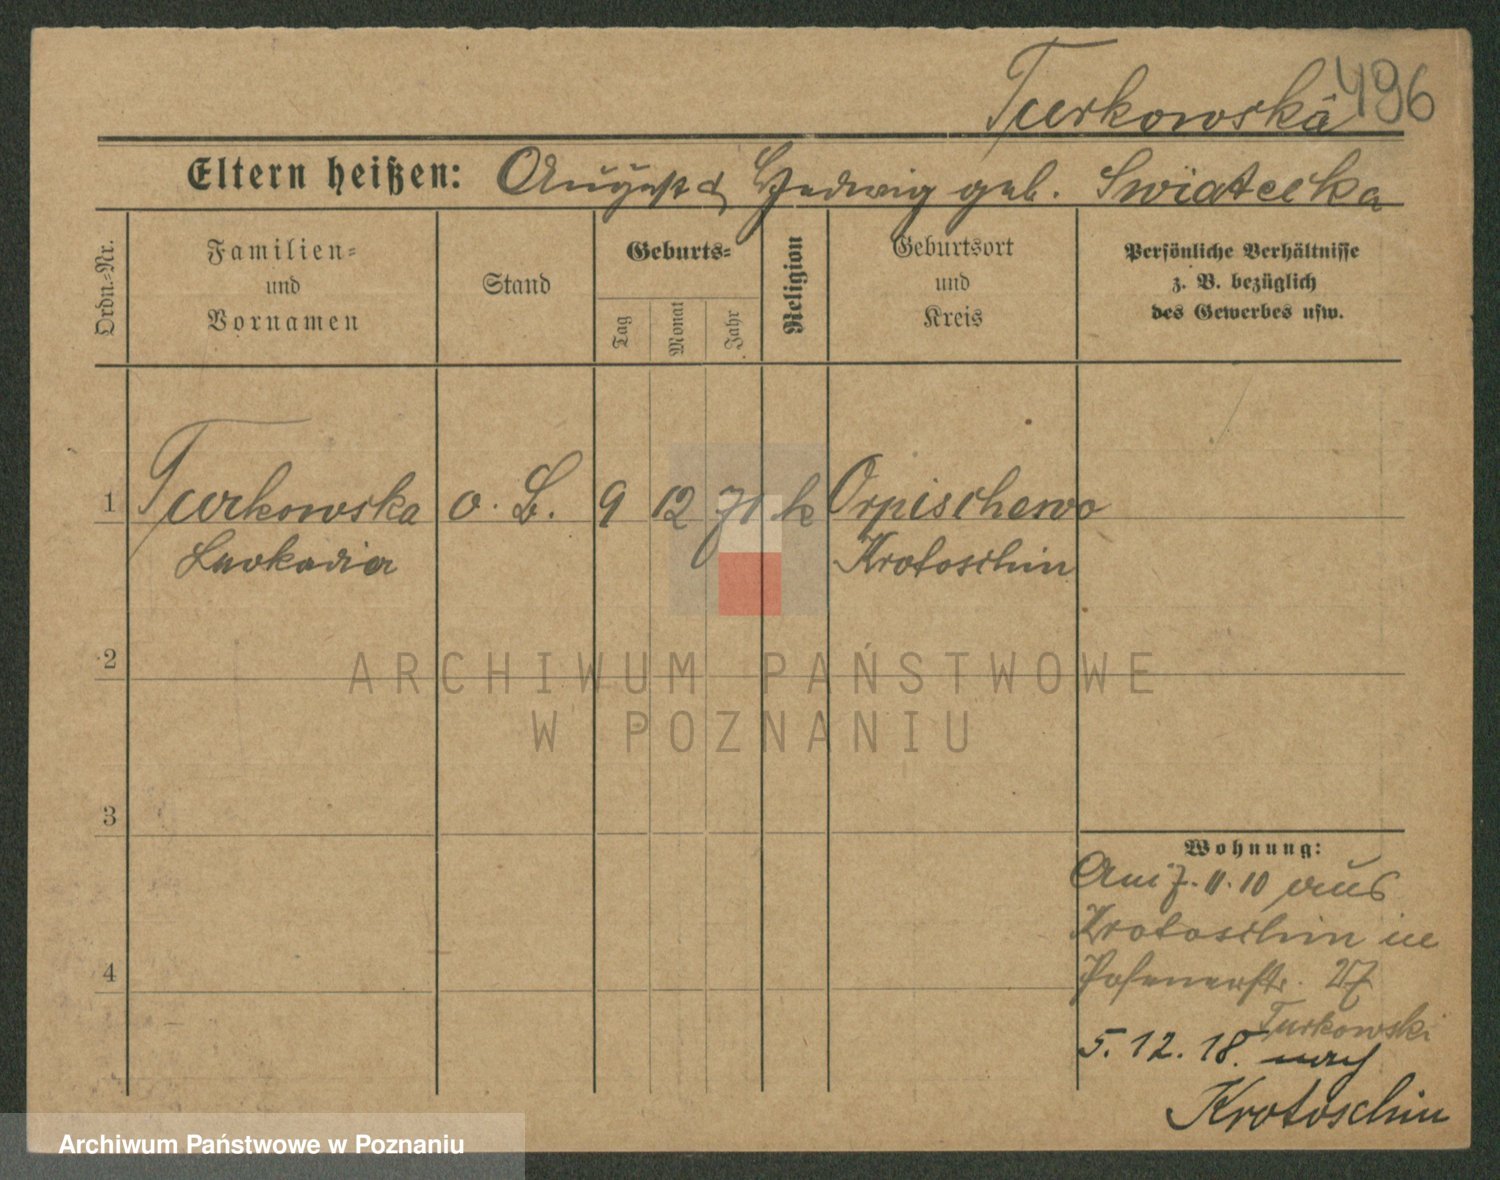 Turkowska 496
Eltern heißen: August & Hedwig geb. Swiatecka
Ordn.-Nr.
Familien-
und
Vornamen
Stand
Geburts-
Tag
Monat
Jahr
Religion
Geburtsort
und
Kreis
Persönliche Verhältnisse
z. B. bezüglich
des Gewerbes usw.
1 Turkowska o. B. 9 12 71 k Orpischewo
Leokadia Krotoschin
2
ARCHIWUM PAŃSTWOWE
W POZNANIU
3
Wohnung:
11. 10 aus
Krotoschin in
4
Posenerstr. 27
Turkowski
5. 12. 18. nach
Krotoschin
Archiwum Państwowe w Poznaniu